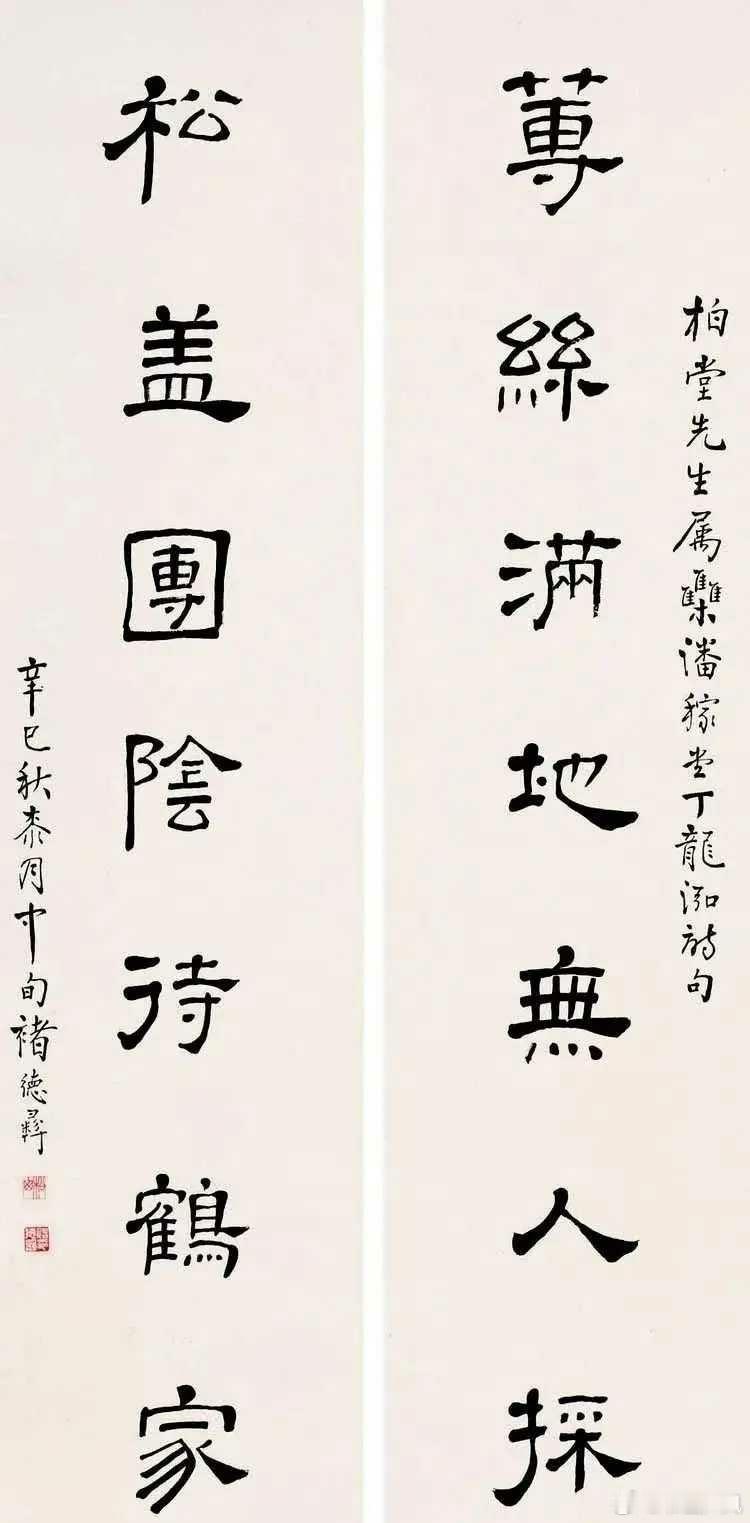 柏堂先生属雧潘稼坣丁龍泓詩句
蓴絲滿地無人採
松盖團陰待鶴家
辛巳秋桼月中旬褚德彝